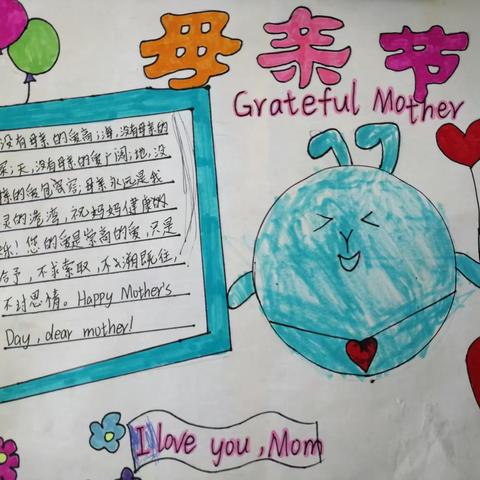 母亲节
Grateful Mother
没有母亲的爱高;海,没有母亲的
深;天,没有母亲的爱广阔;地,没
亲的爱包容;母亲永远是我
灵的港湾,祝妈妈健康快
乐!您的爱是崇高的爱,只是
给予,不求索取,不溯既往,
不讨恩情。Happy Mother's
Day, dear mother!
I love you, Mom